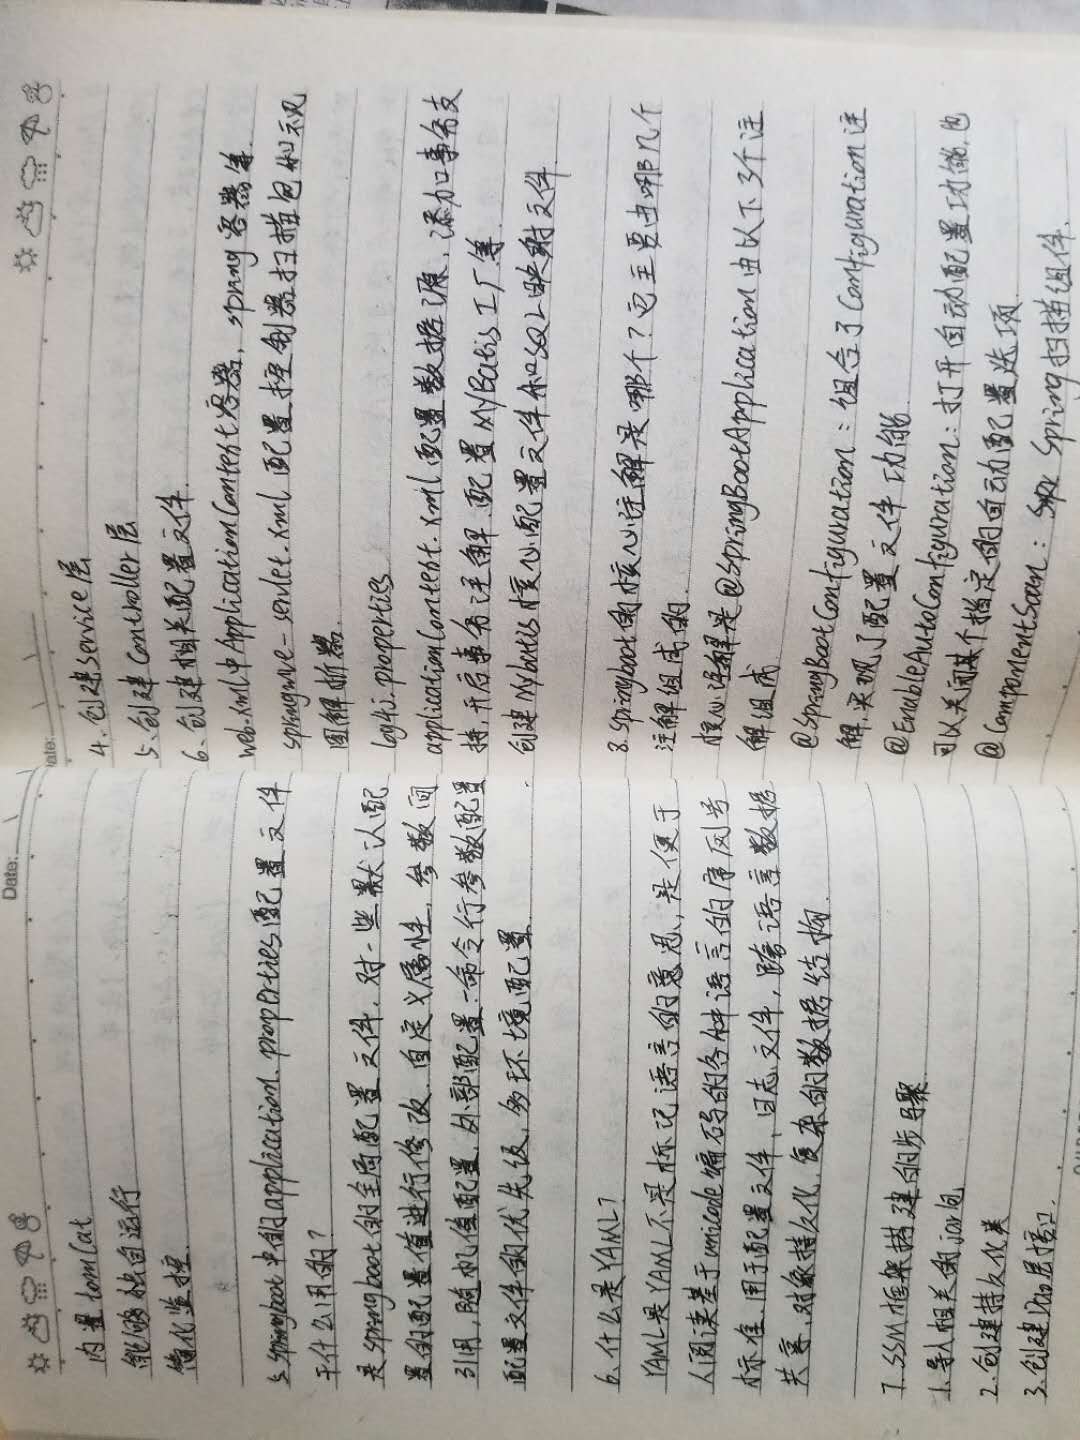 Date:
内置tomcat
能够独自运行
简化监控
5. Springboot中的application.properties配置文件
干什么用的?
是Springboot的全局配置文件.对一些默认配
置的配置值进行修改.自定义属性,参数间
引用,随机值配置,外部配置-命令行参数配置
配置文件的优先级,多环境配置
6.什么是YAML?
YAML是YAML不是标记语言的意思,是便于
人阅读基于unicode编码的各种语言的序列号
标准.用于配置文件,日志文件,跨语言数据
共享,对象持久化,复杂的数据结构.
7.SSM框架搭建的步骤
1.导入相关的jar包
2.创建持久化类
3.创建Dao层接口.
ate:
4.创建service层
5.创建Controller层
6.创建相关配置文件.
web.xml中ApplicationContext容器,spring容器等.
springmve-servlet.xml配置控制器扫描包和视
图解析器.
log4j.properties
applicationContext.xml配置数据源,添加事务支
持,开启事务注解.配置MyBatis工厂等.
创建Mybatis核心配置文件和SQL映射文件
8.Springboot的核心注解是哪个?它主要由哪几个
注解组成的.
核心注解是@SpringBootApplication由以下3个注
解组成
@SpringBootConfiguration:组合了Configuration注
解,实现了配置文件功能
@EnableAutoConfiguration:打开自动配置功能.也
可以关闭某个指定的自动配置选项
@ComponentScan: Spring扫描组件.